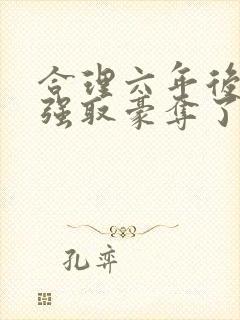 合理六年後
强取豪夺了
孔弈